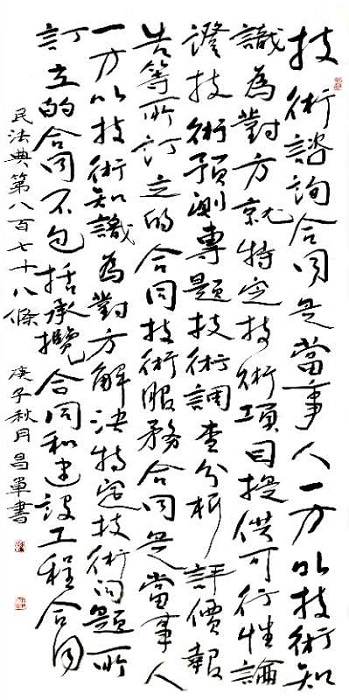 技術諮詢合同是當事人一方以技術知
識為對方就特定技術項目提供可行性論
證技術預測專題技術調查分析評價報
告等所訂立的合同技術服務合同是當事人
一方以技術知識為對方解決特定技術問題所
訂立的合同不包括承攬合同和建設工程合同
民法典第八百七十八條 庚子秋月昌軍書